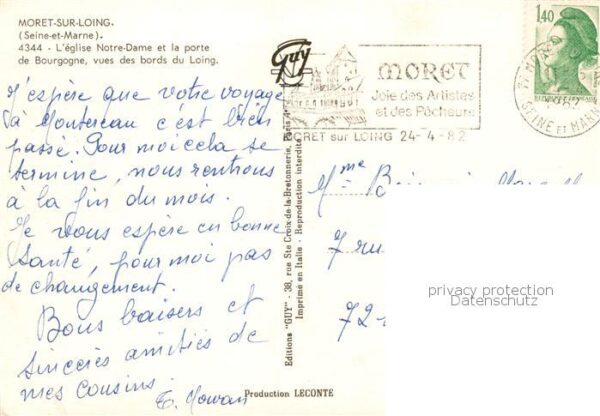 MORET-SUR-LOING.
(Seine-et-Marne).
4344 - L'église Notre-Dame et la porte
de Bourgogne, vues des bords du Loing.
J'espère que votre voyage
à Montereau c'est bien
passé. Pour moi cela se
termine, nous rentrons
à la fin du mois.
Je vous espère en bonne
santé, pour moi pas
de changement.
Bons baisers et
sincères amitiés de
mes cousins.
Guy
Editions "GUY" - 38, rue Ste Croix-de-la-Bretonnerie, Paris
Imprimé en Italie - Reproduction interdite
Production LECONTE
MORET
Joie des Artistes
et des Pêcheurs
MORET sur LOING 24-4-82
1,40
SEINE ET MARNE
Mme
7 rue
72
privacy protection
Datenschutz